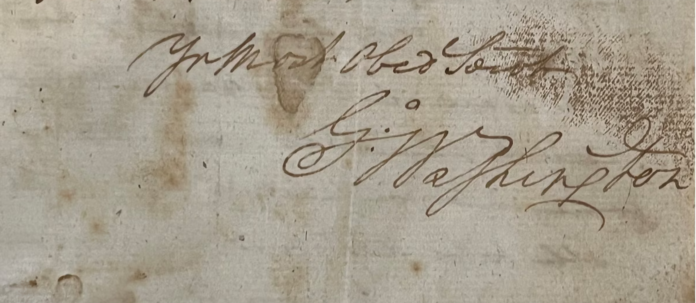 Yr Most Obed Servt
Go: Washington